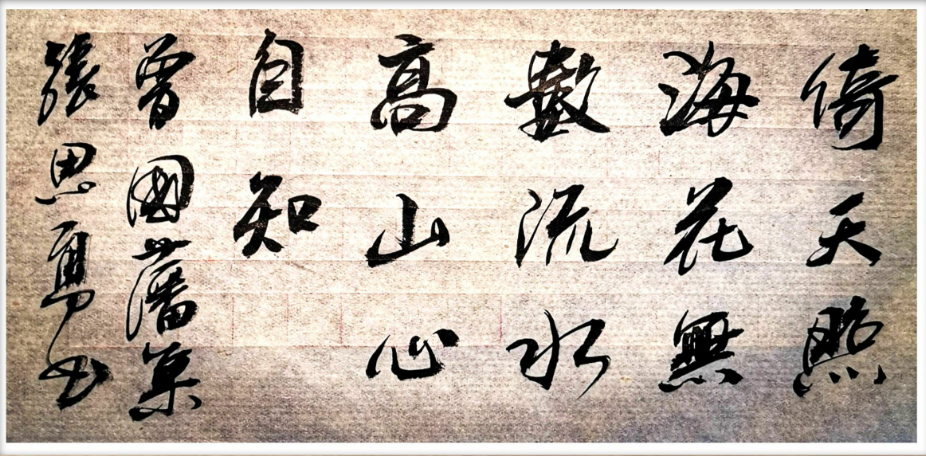 倚天照
海花無
數流水
高山心
自知
曾國藩
張思勇书